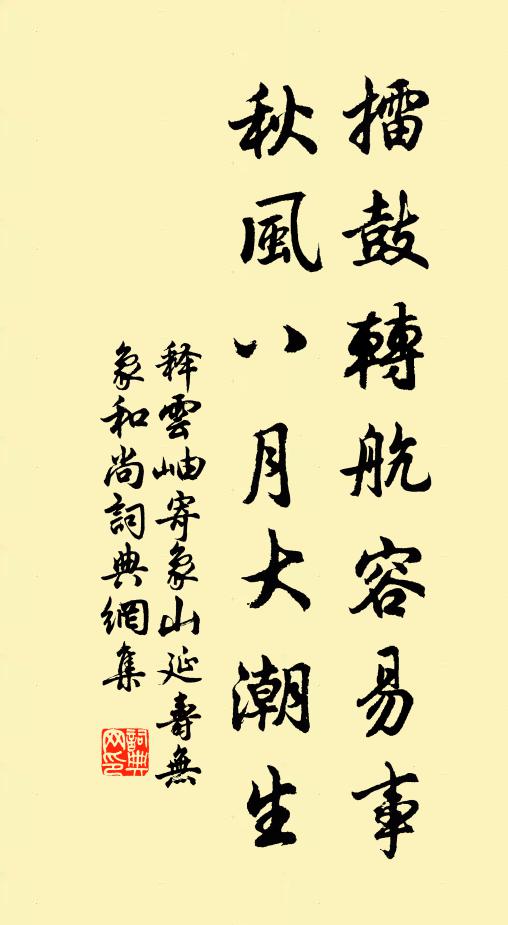 擂鼓轉航容易事
秋風八月大潮生
釋雲岫寄象山延壽無
象和尚詞典網集
詞典網印